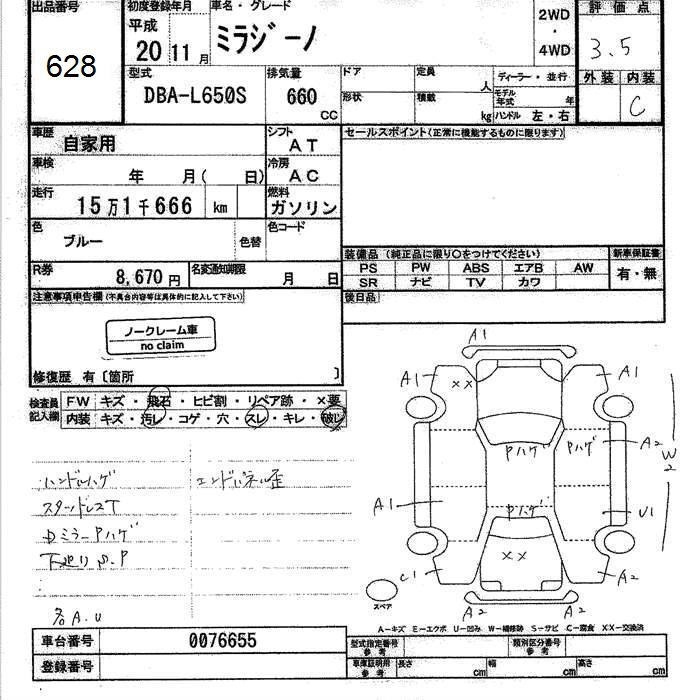 出品番号
628
初度登録年月
平成
20 11 月
車名・グレード
ミラジーノ
2WD
・
4WD
評価点
3.5
外装 内装
C
型式
DBA-L650S
排気量
660
CC
ドア
定員
人
形状
積載
kg
ディーラー・並行
モデル年式 年
ハンドル 左・右
車歴
自家用
シフト
AT
車検
年 月( 日)
冷房
AC
走行
15万1千666 km
燃料
ガソリン
色
ブルー
色替
色コード
R券
8,670 円
名変通知期限
月 日
セールスポイント(正常に機能するものに限ります)
装備品 (純正品に限り○をつけてください)
PS PW ABS エアB AW
SR ナビ TV カワ
新車保証書
有・無
後日品
注意事項申告欄(不具合内容等は具体的に記入して下さい)
ノークレーム車
no claim
修復歴 有〔箇所 〕
検査員記入欄
FW キズ・飛石・ヒビ割・リペア跡・×要
内装 キズ・汚レ・コゲ・穴・スレ・キレ・破レ
ハンドルハゲ
エンドパネル歪
スタッドレスT
DミラーPハゲ
各A.U
A1
A1
××
A1
Pハゲ
Pハゲ
A2
W2
A1
Pハゲ
U1
××
C1
A2
スペア
A2
A2
A－キズ E－エクボ U－凹み W－補修跡 S－サビ C－腐食 XX－交換済
車台番号
0076655
登録番号
型式指定番号
参考
類別区分番号
参考
車庫証明用
参考
長さ
cm
幅
cm
高さ
cm